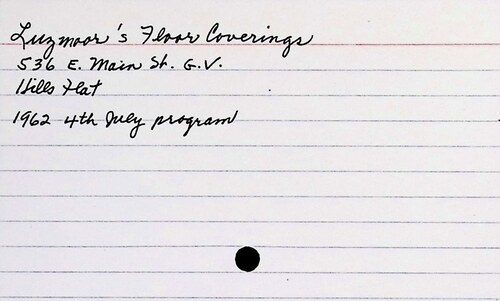 Luzmoor's Floor Coverings
536 E. Main St. G.V.
Hills Flat
1962 4th July program